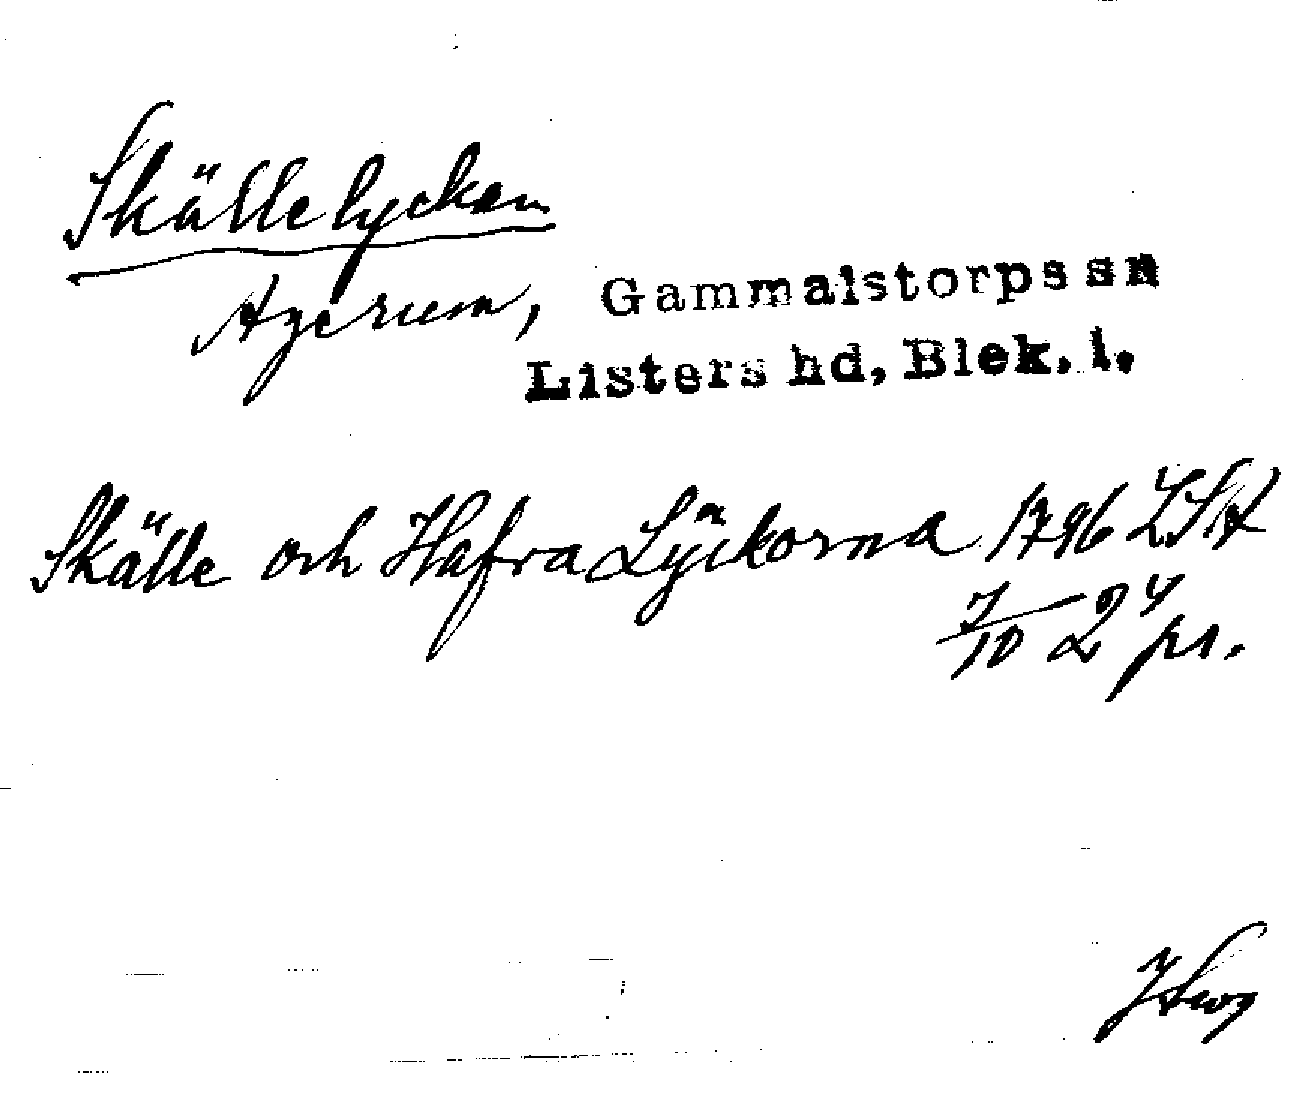 Skällelycken
Agerum, Gammalstorps sn
Listers hd, Blek. l.
Skälle och Hafra Lyckorna 1796 LSA
7/10 24 ps.